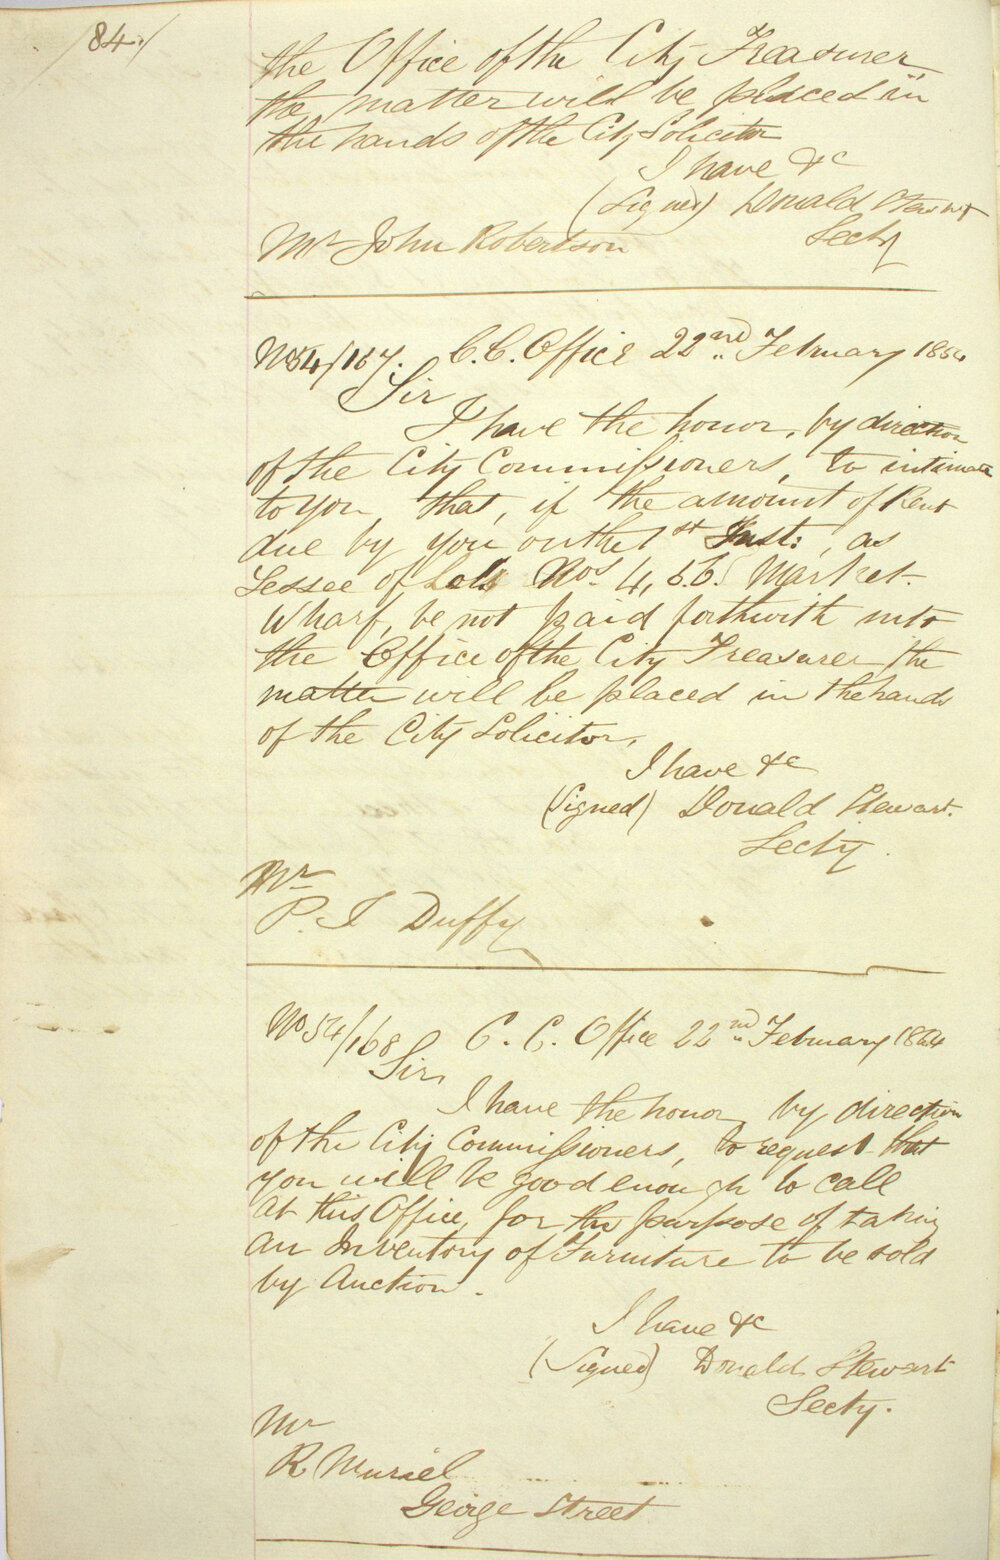 84.
the Office of the City Treasurer
the matter will be placed in
the hands of the City Solicitor
I have &c
(Signed) Donald Stewart
Secty
Mr John Robertson
No 54/167. C.C. Office 22nd February 1854
Sir
I have the honor, by direction
of the City Commissioners, to intimate
to you, that, if the amount of Rent
due by you on the 1st Inst:, as
Lessee of Lots Nos. 4, 5 6. Market
Wharf, be not paid forthwith into
the Office of the City Treasurer the
matter will be placed in the hands
of the City Solicitor,
I have &c
(Signed) Donald Stewart.
Secty.
Mr
P. J Duffy
No 54/168 C. C. Office 22nd February 1854
Sir,
I have the honor, by direction
of the City Commissioners, to request that
you will be good enough to call
at this Office, for the purpose of taking
an Inventory of Furniture to be sold
by Auction.
I have &c
(Signed) Donald Stewart
Secty.
Mr
R Muriel
George Street